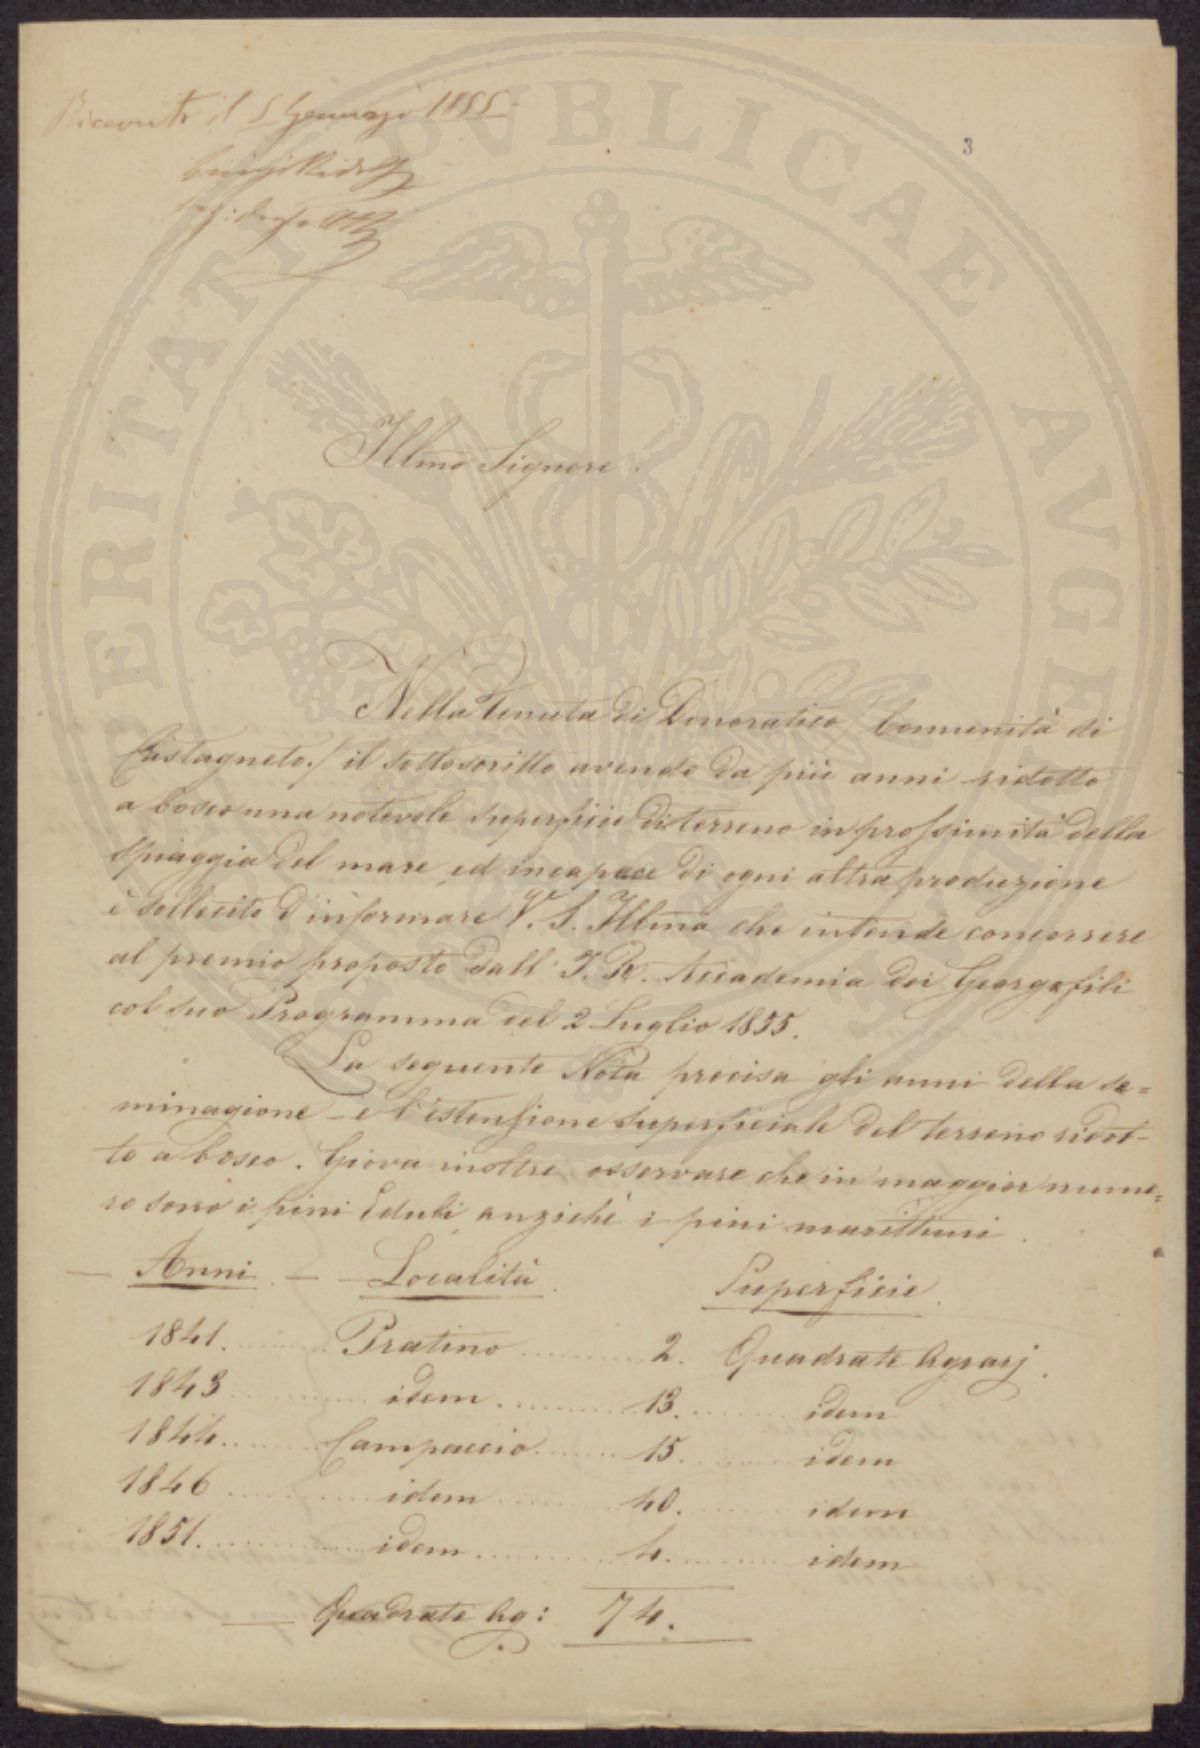 Ricevuto il 5 Gennajo 1855
Luigi Ridolfi
3
PROSPERITATI PVBLICAE AVGENDAE
Illmo Signore.
Nella Tenuta di Donoratico / Comunità di
Castagneto / il sottoscritto avendo da più anni ridotto
a bosco una notevole superficie di terreno in prossimità della
spiaggia del mare ed incapace di ogni altra produzione
è sollecito d'informare V. S. Illma che intende concorrere
al premio proposto dall' I. R. Accademia dei Georgofili
col suo Programma del 2 Luglio 1855.
La seguente Nota precisa gli anni della se=
minagione e l'istensione superficiale del terreno ridot-
to a bosco. Giova inoltre osservare che in maggior nume=
ro sono i pini Eduli anzichè i pini marittimi.
Anni Località Superficie
1841. Pratino 2. Quadrate Agrarj.
1843 idem 13. idem
1844. Campaccio 15. idem
1846 idem 40. idem
1851. idem 4. idem
Quadrate Ag: 74.